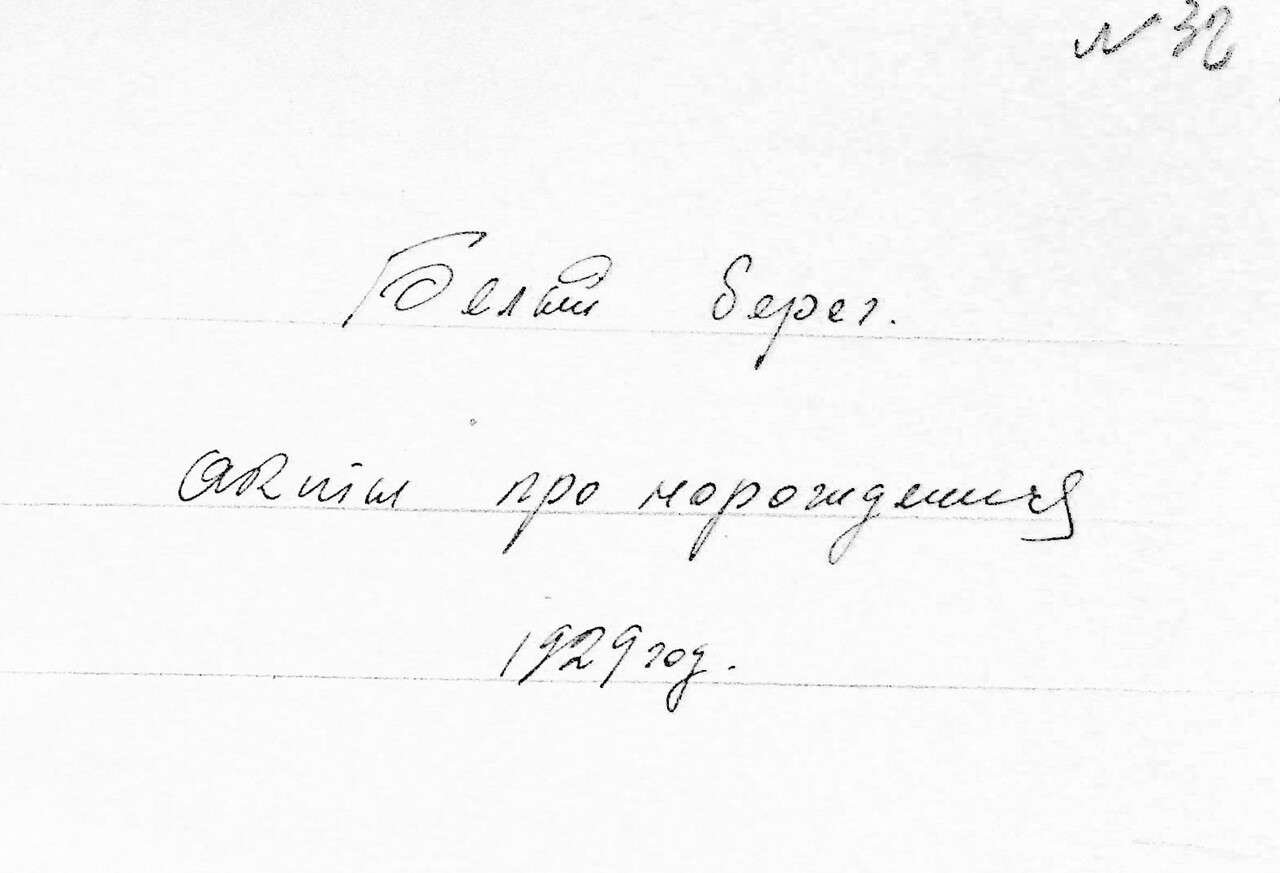 N 32
Белый берег.
акты про нарождения
1929 год.